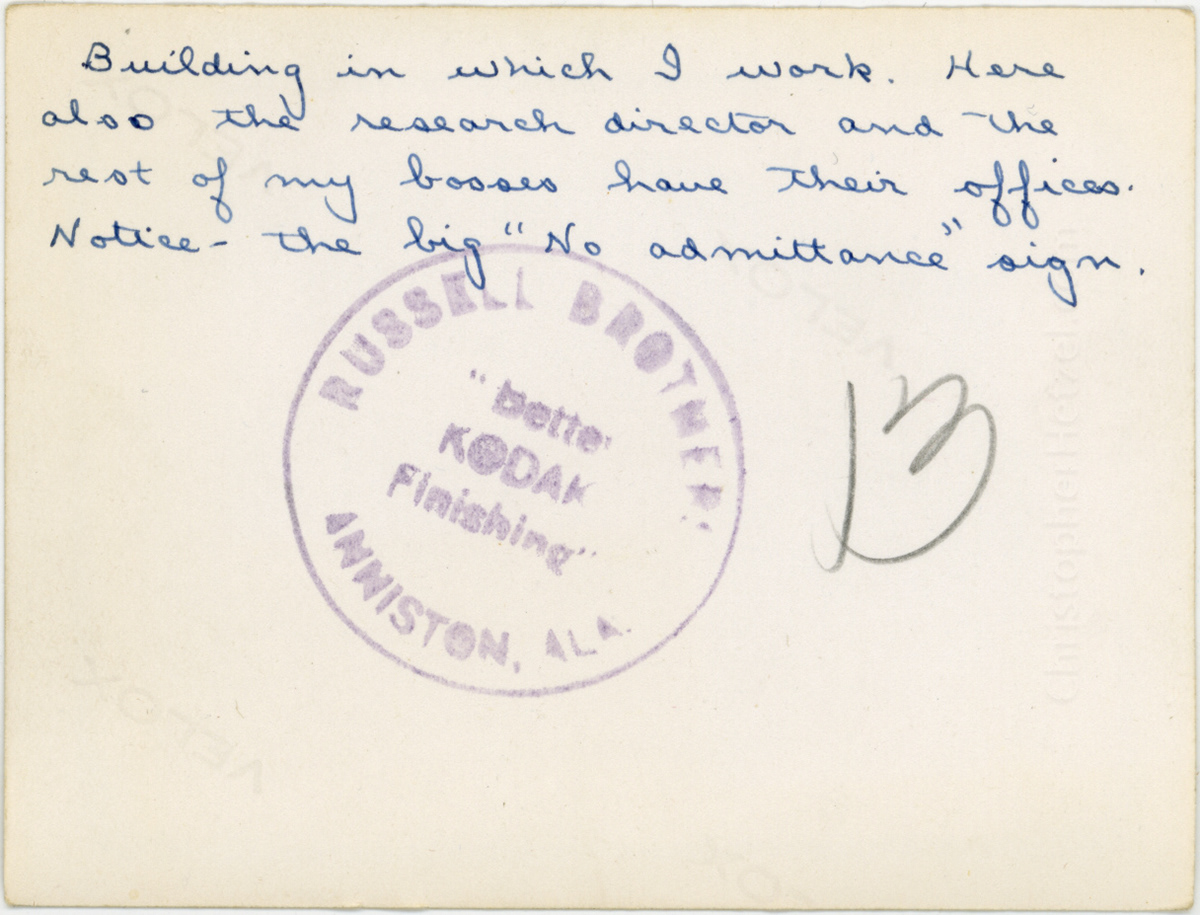 Building in which I work. Here
also the research director and the
rest of my bosses have their offices.
Notice - the big "No admittance" sign.
RUSSELL BROTHERS
"Better
KODAK
Finishing"
ANNISTON, ALA.
B
VELOX
VELOX
VELOX
ChristopherHetzel.com